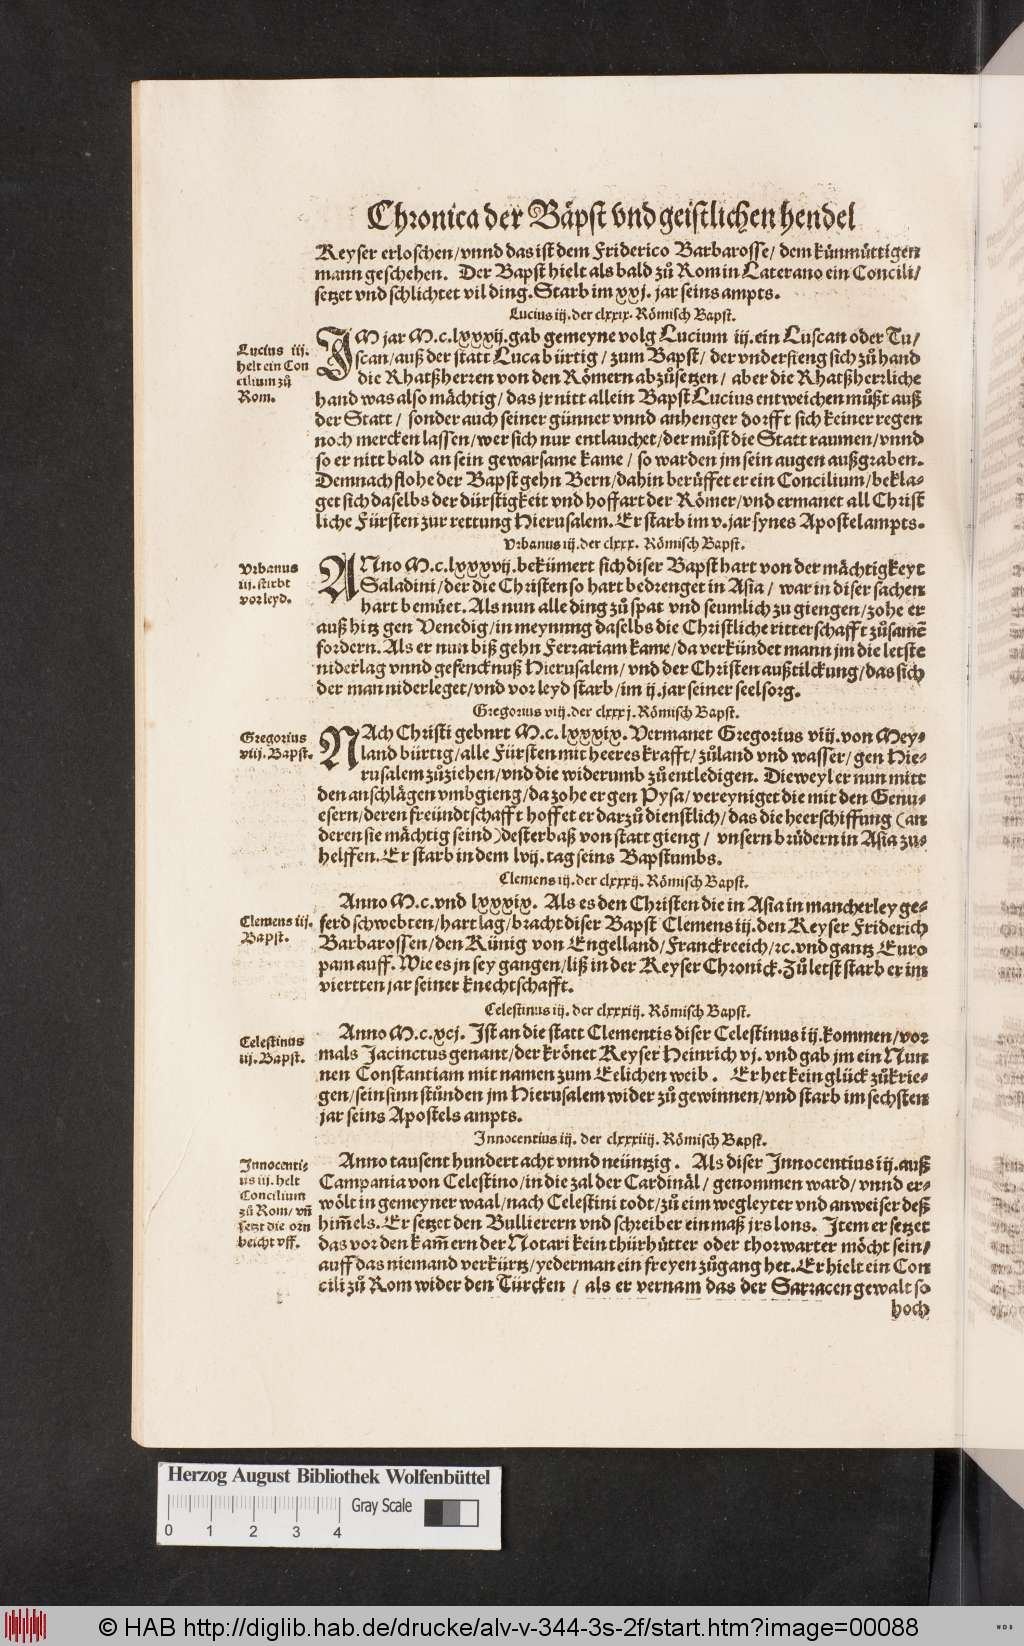 Chronica der Bäpst vnd geistlichen hendel
Keyser erloschen/vnnd das ist dem Friderico Barbarosse/ dem künmüttigen
mann geschehen. Der Bapst hielt als bald zů Rom in Laterano ein Concili/
setzet vnd schlichtet vil ding. Starb im xxj. jar seins ampts.
Lucius iij. der clxxix. Römisch Bapst.
Lucius iij.
helt ein Con
cilium zů
Rom.
IM jar M.c.lxxxij. gab gemeyne volg Lucium iij. ein Luscan oder Tu/
scan/auß der statt Luca bürtig/ zum Bapst/ der vnderfieng sich zů hand
die Rhatßherren von den Römern abzůsetzen/ aber die Rhatßherrliche
hand was also mächtig/ das jr nitt allein Bapst Lucius entweichen můßt auß
der Statt/ sonder auch seiner günner vnnd anhenger dorfft sich keiner regen
noch mercken lassen/wer sich nur entlauchet/der můst die Statt raumen/vnnd
so er nitt bald an sein gewarsame kame/ so warden jm sein augen außgraben.
Demnach flohe der Bapst gehn Bern/dahin berůffet er ein Concilium/bekla-
get sich daselbs der dürstigkeit vnd hoffart der Römer/vnd ermanet all Christ
liche Fürsten zur rettung Hierusalem. Er starb im v. jar synes Apostelampts.
Vrbanus iij. der clxxx. Römisch Bapst.
Vrbanus
iij. stirbt
vor leyd.
ANno M.c.lxxxvij. bekümert sich diser Bapst hart von der mächtigkeyt
Saladini/der die Christen so hart bedrenget in Asia/ war in diser sachen
hart bemüet. Als nun alle ding zů spat vnd seumlich zu giengen/zohe er
auß hitz gen Venedig/in meynnng daselbs die Christliche ritterschafft zůsamē
fordern. Als er nun biß gehn Ferrariam kame/da verkündet mann jm die letste
niderlag vnnd gefencknuß Hierusalem/vnd der Christen außtilckung/das sich
der man niderleget/vnd vor leyd starb/im ij. jar seiner seelsorg.
Gregorius viij. der clxxxj. Römisch Bapst.
Gregorius
viij. Bapst.
NAch Christi gebnrt M.c.lxxxix. Vermanet Gregorius viij. von Mey-
land bürtig/alle Fürsten mit heeres krafft/zůland vnd wasser/gen Hie-
rusalem zůziehen/vnd die widerumb zů entledigen. Dieweyl er nun mitt
den anschlägen vmbgieng/da zohe er gen Pysa/vereyniget die mit den Genu-
esern/deren freündtschafft hoffet er darzů dienstlich/das die heerschiffung (an
deren sie mächtig seind) desterbaß von statt gieng/ vnsern brüdern in Asia zu-
helffen. Er starb in dem lvij. tag seins Bapstumbs.
Clemens iij. der clxxxij. Römisch Bapst.
Clemens iij.
Bapst.
Anno M.c.vnd lxxxix. Als es den Christen die in Asia in mancherley ge-
ferd schwebten/hart lag/bracht diser Bapst Clemens iij. den Keyser Friderich
Barbarossen/den Künig von Engelland/Franckreeich/ꝛc.vnd gantz Euro
pam auff. Wie es jn sey gangen/liß in der Keyser Chronick. Zůletst starb er im
viertten jar seiner knechtschafft.
Celestinus iij. der clxxxiij. Römisch Bapst.
Celestinus
iij. Bapst.
Anno M.c.xcj. Ist an die statt Clementis diser Celestinus iij. kommen/vor
mals Jacinctus genant/der krönet Keyser Heinrich vj. vnd gab jm ein Nun
nen Constantiam mit namen zum Eelichen weib. Er het kein glück zůkrie-
gen/sein sinn stůnden jm Hierusalem wider zů gewinnen/vnd starb im sechsten
jar seins Apostels ampts.
Innocentius iij. der clxxxiiij. Römisch Bapst.
Innocenti-
us iij. helt
Concilium
zů Rom/ vñ
setzt die orn
beicht vff.
Anno tausent hundert acht vnnd neüntzig. Als diser Innocentius iij. auß
Campania von Celestino/in die zal der Cardinäl/ genommen ward/ vnnd er-
wölt in gemeyner waal/nach Celestini todt/zů eim wegleyter vnd anweiser deß
him̄els. Er setzet den Bullierern vnd schreiber ein maß jrs lons. Item er setzet
das vor den kam̄ern der Notari kein thürhůtter oder thorwarter möcht sein/
auff das niemand verkürtz/yederman ein freyen zůgang het. Er hielt ein Con
cili zů Rom wider den Türcken/ als er vernam das der Sarracen gewalt so
hoch
Herzog August Bibliothek Wolfenbüttel
Gray Scale
0 1 2 3 4
© HAB http://diglib.hab.de/drucke/alv-v-344-3s-2f/start.htm?image=00088